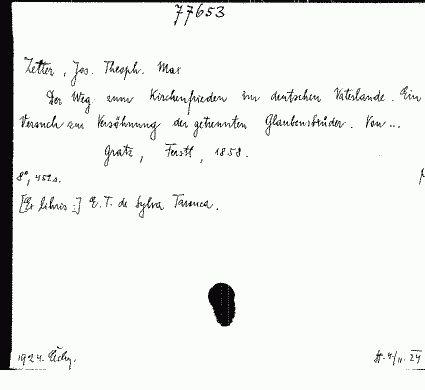 77653
Zetter, Jos. Theoph. Max
Der Weg zum Kirchenfrieden im deutschen Vaterlande. Ein
Versuch zur Versöhnung der getrennten Glaubensbrüder. Von ...
Gratz, Ferstl, 1858.
8°, 452 s.
[Ex libris:] E. T. de Sylva Tarouca.
1924.
4/11. 24